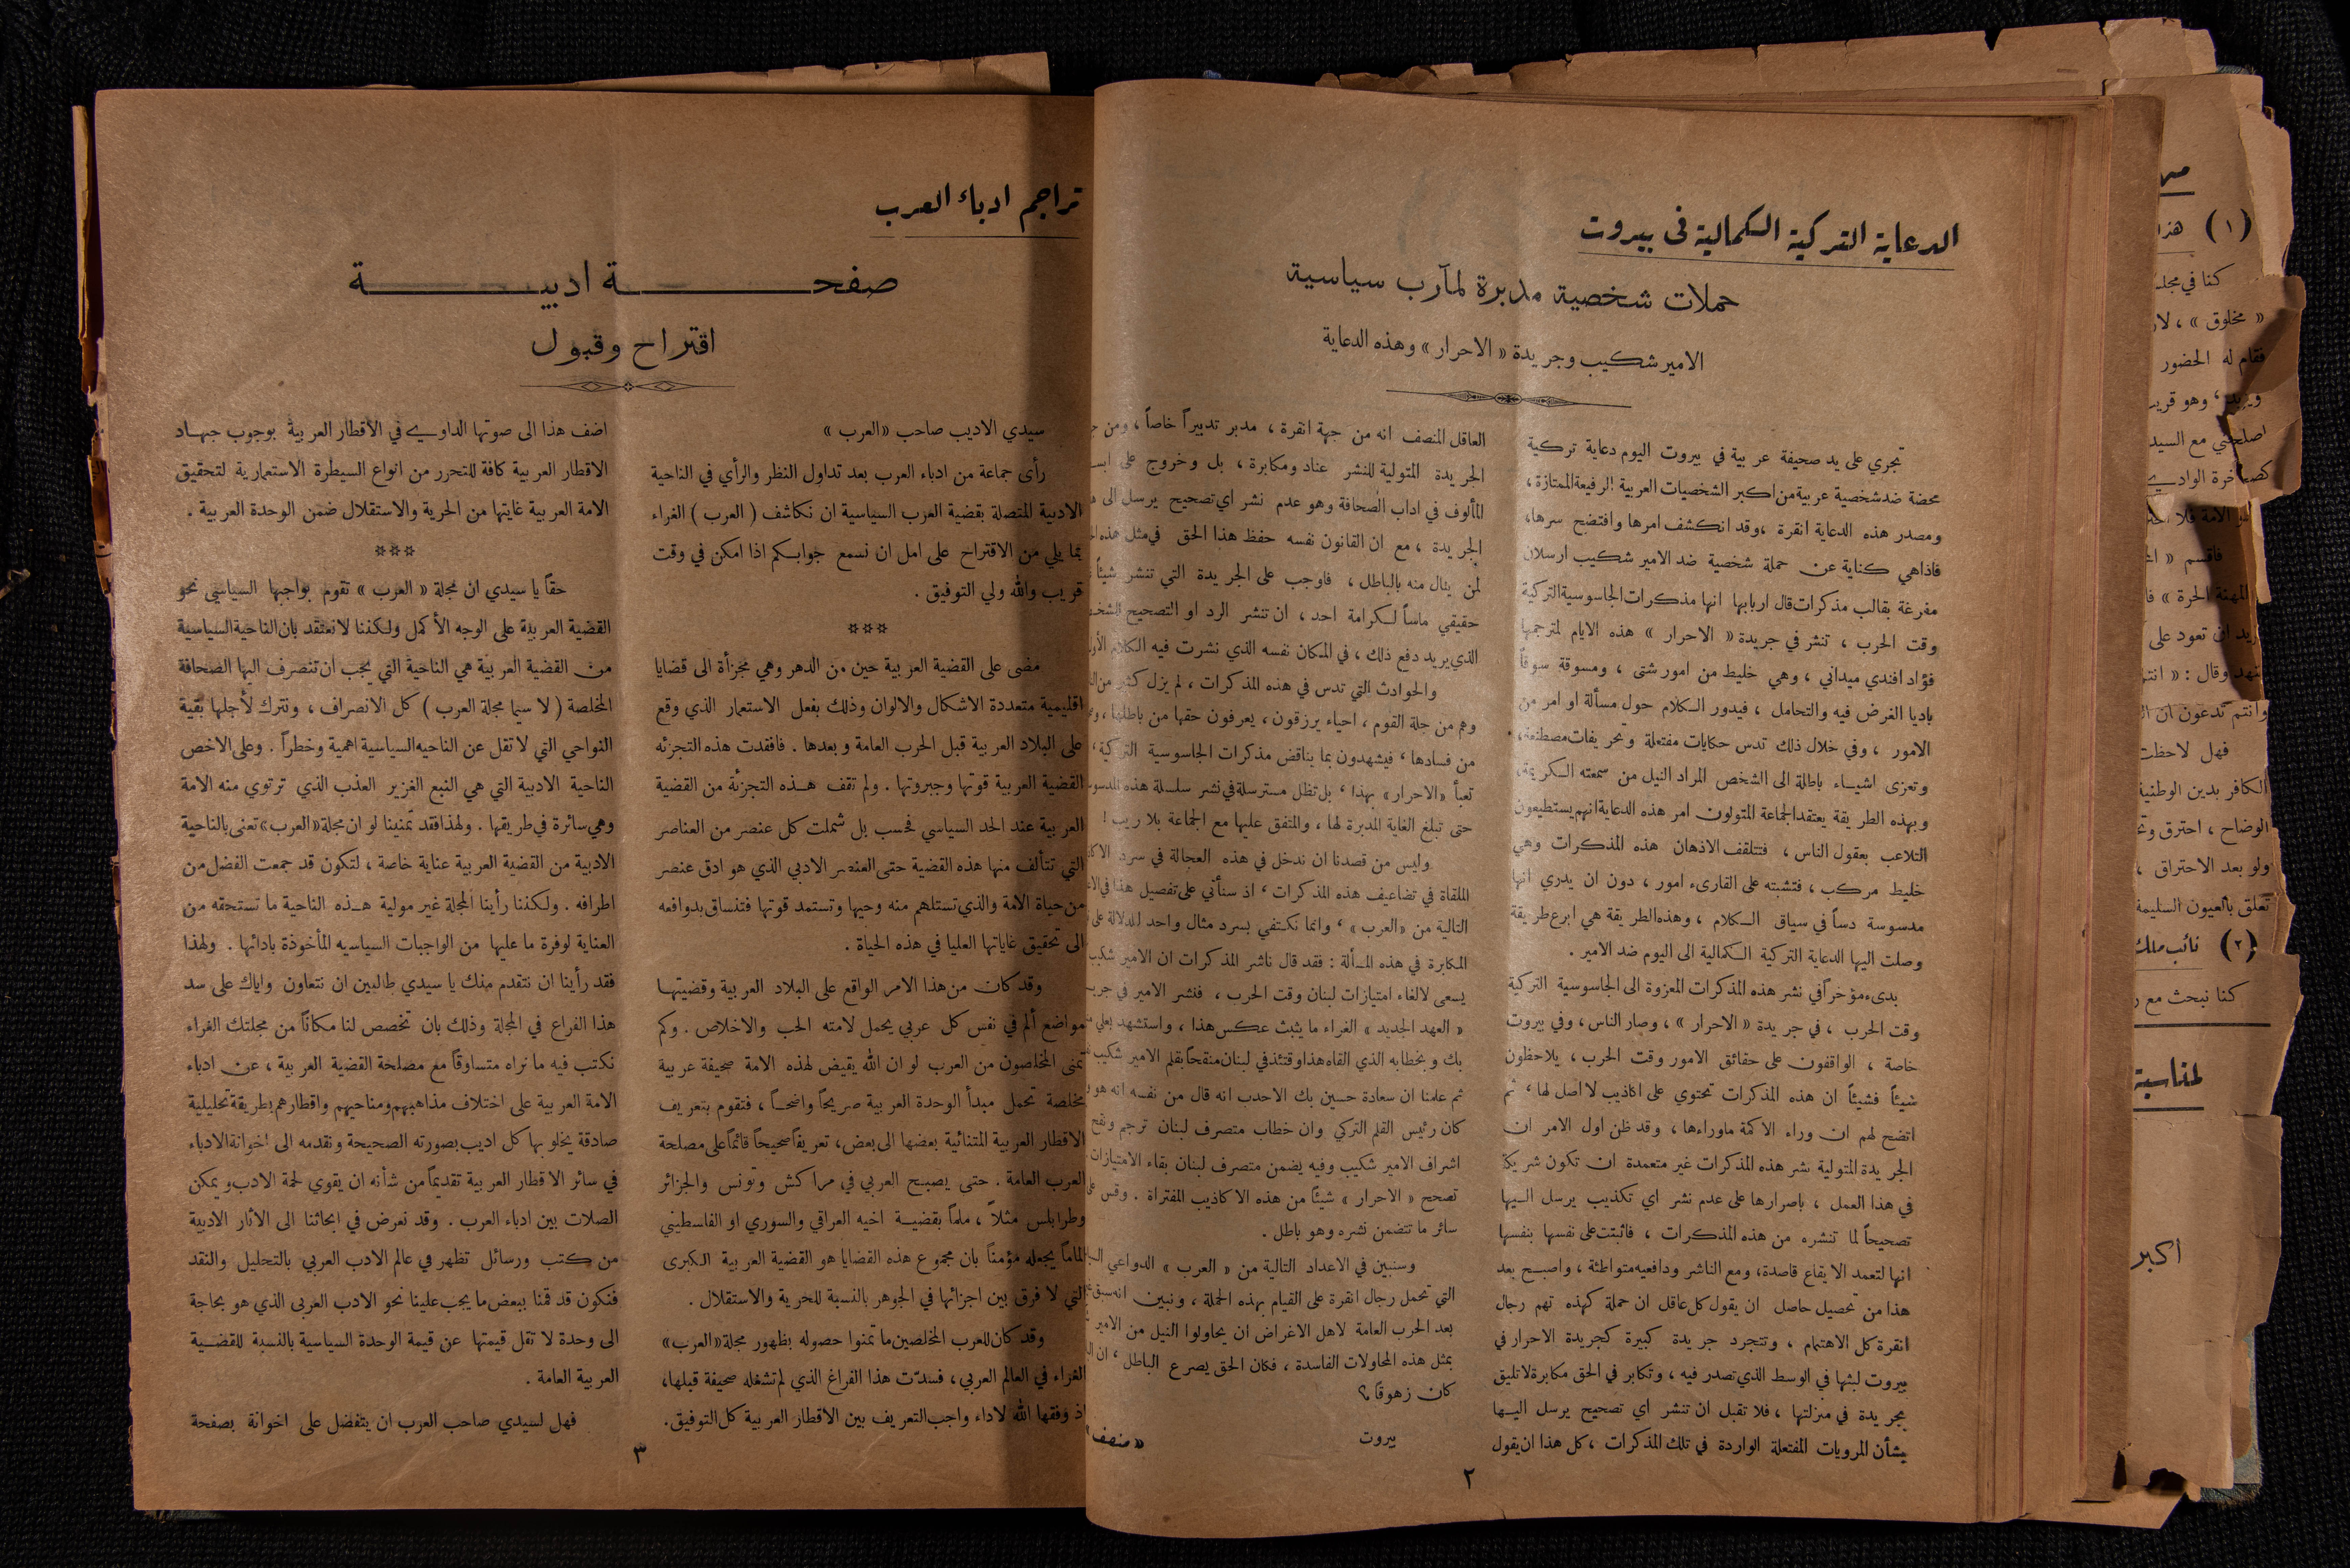 الدعاية التركية الكمالية فى بيروت
حملات شخصية مدبرة لمآرب سياسية
الامير شكيب وجريدة « الاحرار » وهذه الدعاية
تجري على يد صحيفة عربية في بيروت اليوم دعاية تركية
محضة ضد شخصية عربية من اكبر الشخصيات العربية الرفيعة الممتازة ،
ومصدر هذه الدعاية انقرة ، وقد انكشف امرها وافتضح سرها،
فاذا هي كناية عن حملة شخصية ضد الامير شكيب ارسلان
مفرغة بقالب مذكرات قال اربابها انها مذكرات الجاسوسية التركية
وقت الحرب ، تنشر في جريدة « الاحرار » هذه الايام لمترجمها
فؤاد افندي ميداني ، وهي خليط من امور شتى ، ومسوقة سوقاً
باديا الغرض فيه والتحامل ، فيدور الكلام حول مسألة او امر من
الامور ، وفي خلال ذلك تدس حكايات مفتعلة وتحريفات مصطنعة،
وتعزى اشياء باطلة الى الشخص المراد النيل من سمعته الكريمة،
وبهذه الطريقة يعتقد الجماعة المتولون امر هذه الدعاية انهم يستطيعون
التلاعب بعقول الناس ، فتتلقف الاذهان هذه المذكرات وهي
خليط مركب ، فتشبته على القارىء امور ، دون ان يدري انها
مدسوسة دساً في سياق الكلام ، وهذه الطريقة هي ابرع طريقة
وصلت اليها الدعاية التركية الكمالية الى اليوم ضد الامير .
بدىء مؤخراً في نشر هذه المذكرات المعزوة الى الجاسوسية التركية
وقت الحرب ، في جريدة « الاحرار » ، وصار الناس ، وفي بيروت
خاصة ، الواقفون على حقائق الامور وقت الحرب ، يلاحظون
شيئاً فشيئاً ان هذه المذكرات تحتوي على اكاذيب لا اصل لها ، ثم
اتضح لهم ان وراء الاكمة ماوراءها ، وقد ظن اول الامر ان
الجريدة المتولية نشر هذه المذكرات غير متعمدة ان تكون شريكة
في هذا العمل ، باصرارها على عدم نشر اي تكذيب يرسل اليها
تصحيحاً لما تنشره من هذه المذكرات ، فاثبتت على نفسها بنفسها
انها لتعمد الايقاع قاصدة، ومع الناشر ودافعيه متواطئة ، واصبح بعد
هذا من تحصيل حاصل ان يقول كل عاقل ان حملة كهذه تهم رجال
انقرة كل الاهتمام ، وتتجرد جريدة كبيرة كجريدة الاحرار في
بيروت لبثها في الوسط الذي تصدر فيه ، وتكابر في الحق مكابرة لا تليق
بجريدة في منزلتها ، فلا تقبل ان تنشر اي تصحيح يرسل اليها
بشأن المرويات المفتعلة الواردة في تلك المذكرات ، كل هذا ان يقول
العاقل المنصف انه من جهة انقرة ، مدبر تدبيراً خاصاً ، ومن
الجريدة المتولية للنشر عناد ومكابرة ، بل وخروج على
المألوف في اداب الصحافة وهو عدم نشر اي تصحيح يرسل الى
الجريدة ، مع ان القانون نفسه حفظ هذا الحق في مثل هذه
لمن ينال منه بالباطل ، فاوجب على الجريدة التي تنشر شيئاً
حقيقي ماساً لكرامة احد ، ان تنشر الرد او التصحيح
الذي يريد دفع ذلك ، في المكان نفسه الذي نشرت فيه الكلام
والحوادث التي تدس في هذه المذكرات ، لم يزل كثير من
وهم من جلة القوم ، احياء يرزقون ، يعرفون حقها من باطلها ،
من فسادها ، فيشهدون بما يناقض مذكرات الجاسوسية التركية ،
تعبأ «الاحرار» بهذا ، بل تظل مسترسلة في نشر سلسلة هذه
حتى تبلغ الغاية المدبرة لها ، والمتفق عليها مع الجماعة بلا ريب !
وليس من قصدنا ان ندخل في هذه العجالة في سرد
الملقاة في تضاعيف هذه المذكرات ، اذ سنأتي على تفصيل هذا في
التالية من «العرب» ، وانما نكتفي بسرد مثال واحد للدلالة على
المكابرة في هذه المسألة : فقد قال ناشر المذكرات ان الامير شكيب
يسعى لالغاء امتيازات لبنان وقت الحرب ، فنشر الامير في
« العهد الجديد » الغراء ما يثبث عكس هذا ، واستشهد بعلي
بك وبخطابه الذي القاه هذا وقتئذ في لبنان منقحاً بقلم الامير شكيب
ثم علمنا ان سعادة حسين بك الاحدب انه قال من نفسه انه هو
كان رئيس القلم التركي وان خطاب متصرف لبنان ترجم ونقح
اشراف الامير شكيب وفيه يضمن متصرف لبنان بقاء الامتيازات
تصحح « الاحرار » شيئاً من هذه الاكاذيب المفتراة . وقس
سائر ما تتضمن نشره وهو باطل .
وسنبين في الاعداد التالية من « العرب » الدواعي
التي تحمل رجال انقرة على القيام بهذه الحملة ، ونبين انه سبق
بعد الحرب العامة لاهل الاغراض ان يحاولوا النيل من الامير
بمثل هذه المحاولات الفاسدة ، فكان الحق يصرع الباطل ، ان
كان زهوقا ؟
بيروت
« منصف »
٢
تراجم ادباء العرب
صفحة ادبية
اقتراح وقبول
سيدي الاديب صاحب «العرب »
رأى جماعة من ادباء العرب بعد تداول النظر والرأي في الناحية
الادبية المتصلة بقضية العرب السياسية ان نكاشف ( العرب ) الغراء
بما يلي من الاقتراح على امل ان نسمع جوابكم اذا امكن في وقت
قريب والله ولي التوفيق .
***
مضى على القضية العربية حين من الدهر وهي مجزأة الى قضايا
اقليمية متعددة الاشكال والالوان وذلك بفعل الاستعمار الذي وقع
على البلاد العربية قبل الحرب العامة وبعدها . فافقدت هذه التجزئه
القضية العربية قوتها وجبروتها . ولم تقف هذه التجزئة من القضية
العربية عند الحد السياسي فحسب بل شملت كل عنصر من العناصر
التي تتألف منها هذه القضية حتى العنصر الادبي الذي هو ادق عنصر
من حياة الامة والذي تستلهم منه وحيها وتستمد قوتها فتنساق بدوافعه
الى تحقيق غاياتها العليا في هذه الحياة .
وقد كان من هذا الامر الواقع على البلاد العربية وقضيتها
مواضع ألم في نفس كل عربي يحمل لامته الحب والاخلاص . وكم
تمنى المخلصون من العرب لو ان الله يقيض لهذه الامة صحيفة عربية
مخلصة تحمل مبدأ الوحدة العربية صريحاً واضحاً ، فتقوم بتعريف
الاقطار العربية المتنائية بعضها الى بعض، تعريفاً صحيحاً قائماً على مصلحة
العرب العامة . حتى يصبح العربي في مراكش وتونس والجزائر
وطرابلس مثلاً ، ملماً بقضية اخيه العراقي والسوري او الفلسطيني
الماماً يجعله مؤمناً بان مجموع هذه القضايا هو القضية العربية الكبرى
التي لا فرق بين اجزائها في الجوهر بالنسبة للحرية والاستقلال .
وقد كان للعرب المخلصين ما تمنوا حصوله بظهور مجلة «العرب»
الغراء في العالم العربي ، فسدّت هذا الفراغ الذي لم تشغله صحيفة قبلها،
اذ وفقها الله لاداء واجب التعريف بين الاقطار العربية كل التوفيق.
اضف هذا الى صوتها الداوي في الاقطار العربية بوجوب جهاد
الاقطار العربية كافة للتحرر من انواع السيطرة الاستعمارية لتحقيق
الامة العربية غايتها من الحرية والاستقلال ضمن الوحدة العربية .
***
حقاً يا سيدي ان مجلة « العرب » تقوم بواجبها السياسي نحو
القضية العربية على الوجه الأكمل ولكننا لا نعتقد بان الناحية السياسية
من القضية العربية هي الناحية التي يجب ان تنصرف اليها الصحافة
المخلصة ( لا سيما مجلة العرب ) كل الانصراف ، وتترك لأجلها بقية
النواحي التي لا تقل عن الناحيه السياسية اهمية وخطراً . وعلى الاخص
الناحية الادبية التي هي النبع الغزير العذب الذي ترتوي منه الامة
وهي سائرة في طريقها . ولهذا فقد تمنينا لو ان مجلة «العرب» تعنى بالناحية
الادبية من القضية العربية عناية خاصة ، لتكون قد جمعت الفضل من
اطرافه . ولكننا رأينا المجلة غير مولية هذه الناحية ما تستحقه من
العناية لوفرة ما عليها من الواجبات السياسيه المأخوذة بادائها . ولهذا
فقد رأينا ان نتقدم منك يا سيدي طالبين ان نتعاون واياك على سد
هذا الفراغ في المجلة وذلك بان تخصص لنا مكاناً من مجلتك الغراء
نكتب فيه ما نراه متساوقاً مع مصلحة القضية العربية ، عن ادباء
الامة العربية على اختلاف مذاهبهم ومناحيهم واقطارهم بطريقة تحليلية
صادقة يخلو بها كل اديب بصورته الصحيحة ونقدمه الى اخوانه الادباء
في سائر الاقطار العربية تقديماً من شأنه ان يقوي لحمة الادب ويمكن
الصلات بين ادباء العرب . وقد نعرض في ابحاثنا الى الاثار الادبية
من كتب ورسائل تظهر في عالم الادب العربي بالتحليل والنقد
فنكون قد قمنا ببعض ما يجب علينا نحو الادب العربى الذي هو بحاجة
الى وحدة لا تقل قيمتها عن قيمة الوحدة السياسية بالنسبة للقضية
العربية العامة .
فهل لسيدي صاحب العرب ان يتفضل على اخوانة بصفحة
٣
(١) هذا
كنا في
« مخلوق » ، لا
فقام له الحضور
، وهو
مع السيد
الوادي
الامة فلا
فاقسم «
المهنة الحرة »
ان تعود على
وقال : «
وانتم تدعون ان
فهل لاحظت
الكافر بدين الوطنية
الوضاح ، احترق
ولو بعد الاحتراق ،
تعلق بالعيون السليمة
(٢) نائب ملك
كنا نبحث مع
لمناسبة
أكبر